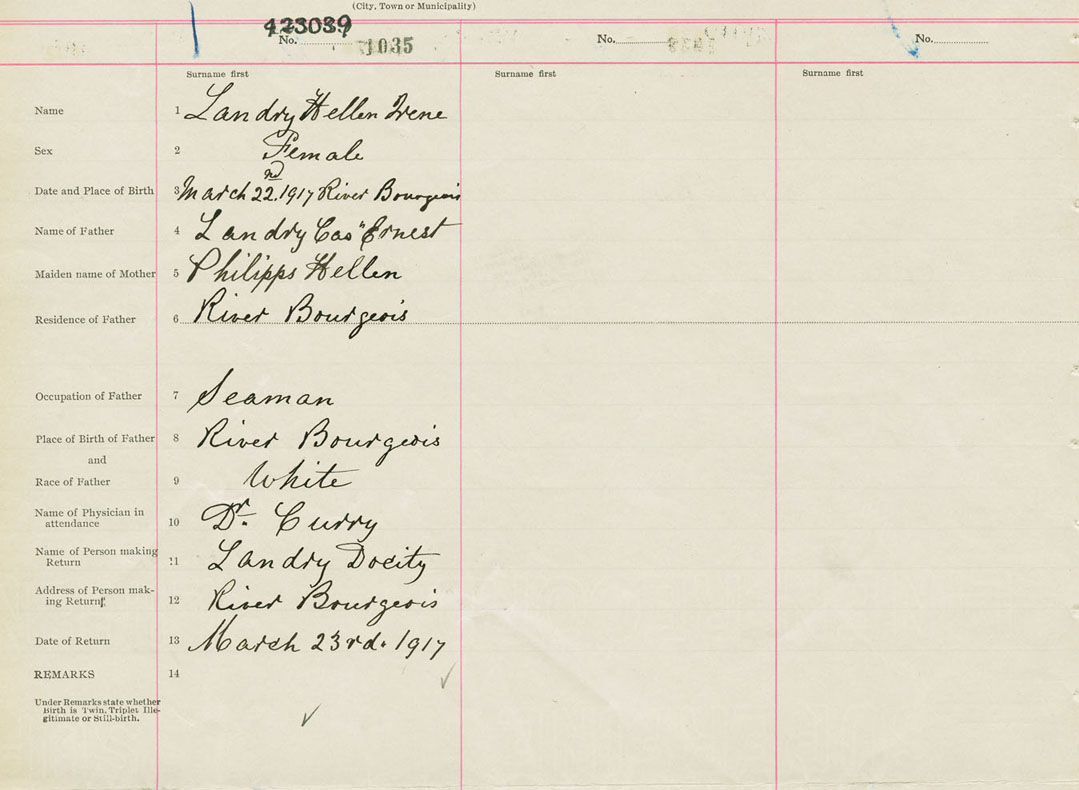 (City, Town or Municipality)
423039
No. 1035 No. No.
Surname first Surname first Surname first
Name 1 Landry Hellen Irene
Sex 2 Female
Date and Place of Birth 3 March 22nd. 1917 River Bourgeois
Name of Father 4 Landry Ernest
Maiden name of Mother 5 Philipps Hellen
Residence of Father 6 River Bourgeois
Occupation of Father 7 Seaman
Place of Birth of Father 8 River Bourgeois
and
Race of Father 9 White
Name of Physician in
attendance 10 Dr. Curry
Name of Person making
Return 11 Landry Docity
Address of Person mak-
ing Return 12 River Bourgeois
Date of Return 13 March 23rd. 1917
REMARKS 14
Under Remarks state whether
Birth is Twin, Triplet Ille-
gitimate or Still-birth.